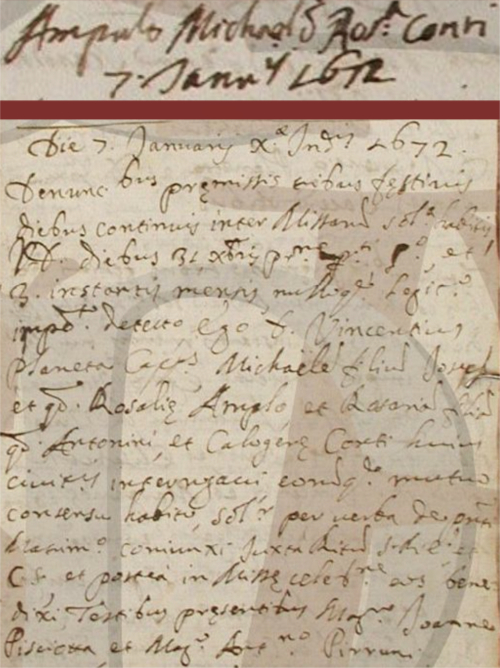 Ampulo Michael s Ros.a Conti
7 Januarij 1672
Die 7. Januarij X.ae Ind.is 1672.
Denunc.bus premissis tribus festivis
diebus continuis inter Missarum sol.a habitis
diebus 31 xbris et
3. instantis mensis nulloq.e legit.o
imp.to detecto Ego D. Vincentius
Planeta Capp.s Michaele filiu Joseph
et q.d Rosalie Ampulo et Rosaria filia
q.d Antonini, et Calogere Conti huius
civitatis interrogavi eorumq.e mutuo
consensu habito, sol.r per verba de p.nti
Matrim.o coniunxi Juxta Ritu S.R.E. et
C.S. et postea in Missę celebr.ne eos bene
dixi, Testibus presentibus Mag.ro Joanne
Pisciotta et Mag.ro Ant.no Pirruni